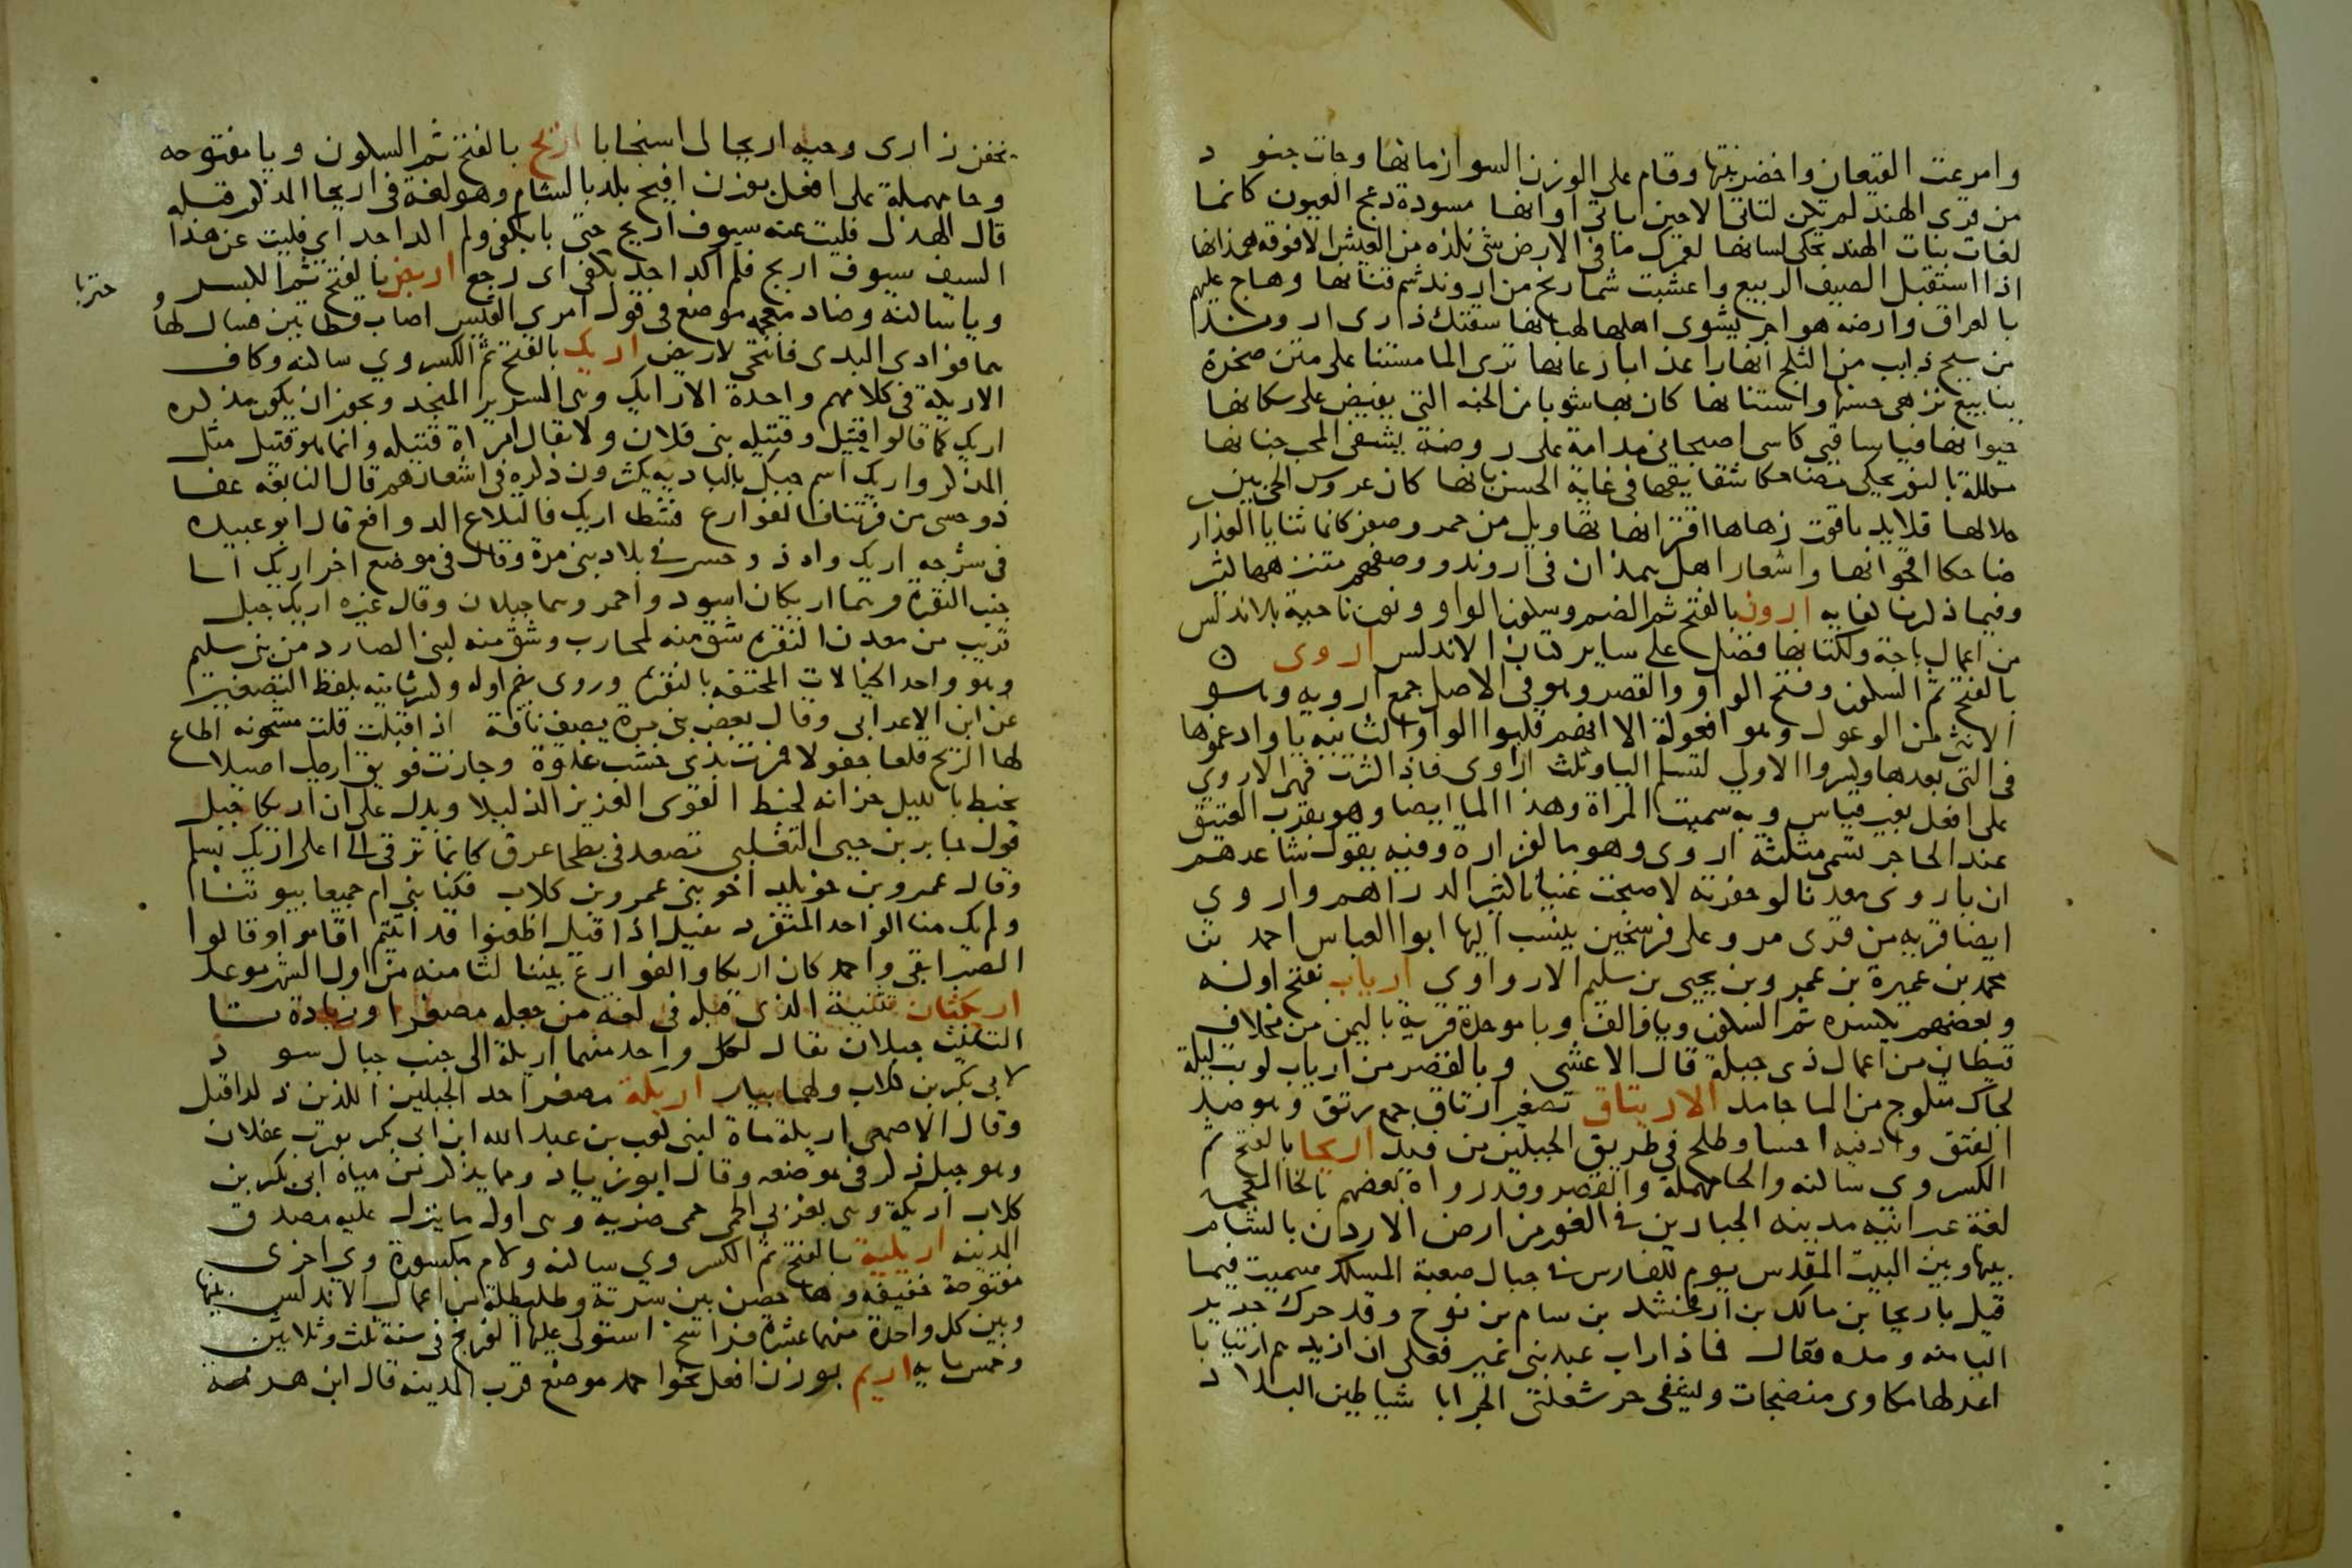 وامرعت القيعان واخضر نبتها وقام على الوزن السوا زمانها وجات جنود
من قرى الهند لم تكن لتاتي الا حين ياتي اوانها مسودة دعج العيون كانما
لغات بنات الهند تحكي لسانها لعمرك ما في الارض شي نلذه من العيش الا فوقه همذانها
اذا استقبل الصيف الربيع واعشبت شماريخ من اروند شم قنانها وهاج عليهم
بالعراق وارضه هواجر يشوي اهلها لهبانها سقتك ذرى اروند
من سيح ذايب من الثلج انهارا عذابا رعانها ترى الما مستنا على متن صخرة
ينابيع يزهي حسنها واستنانها كان بها شوبا من الجنه التي يفيض على سكانها
حيوانها فيا ساقيي كاسي اصبحاني مدامة على روضة يشفي المحب جنانها
مكللة بالنور يحكي مضاحكا شقايقها في غاية الحسن بانها كان عروس الحي بين
خلالها قلايد ياقوت زهاها اقترانها تهاويل من حمر وصفر كانما ثنايا العذار
ضاحكا اقحوانها واشعار اهل همذان في اروند ووصفهم متنزهها كثير
وفيما ذكرنا كفايه ارون بالفتح ثم الضم وسكون الواو ونون ناحية بالاندلس
من اعمال باجة ولكتانها فضل على ساير كتان الاندلس اروى
بالفتح ثم السكون وفتح الواو والقصر وهو في الاصل جمع ارويه وهو
الانثى من الوعول وهو افعولة الا انهم قلبوا الواو الثانيه يا وادغموها
في التي بعدها وكسروا الاولى لتسلم اليا وثلث اراوي فاذا كثرت فهي الاروى
على افعل بغير قياس وبه سميت المراة وهذا الما ايضا وهو بقرب العقيق
عند الحاجر تسمى مثلثة اروى وهو ما لفزارة وفيه يقول شاعرهم
ان باروى معدنا لو حفرته لاصبحت غنيا كثير الدراهم واروى
ايضا قريه من قرى مرو على فرسخين ينسب اليها ابوا العباس احمد بن
محمد بن عميرة بن عمرو بن يحيى بن سليم الاروا وي ارياب بفتح اوله
وبعضهم يكسره ثم السكون ويا والف وبا موحدة قرية باليمن من مخلاف
قيظان من اعمال ذي جبلة قال الاعشى وبالقصر من ارياب لو بت ليلة
لجاك مثلوج من الما جامد الاريتاق تصغير ارتاق جمع رتق وهو ضد
الفتق وادنيه احسا وطلح في طريق الجبلين من فيد اريحا بالفتح ثم
الكسر وي ساكنه والحا مهملة والقصر وقد رواه بعضهم بالخا المعجمة
لغة عبرانيه مدينه الجبارين في الغور من ارض الاردن بالشام
بينها وبين البيت المقدس يوم للفارس في جبال صعبة المسلك سميت فيما
قيل باريحا بن مالك بن ارفخشد بن سام بن نوح وقد حرك جرير
اليا منه ومده فقال فماذا راب عبد بني نمير فعلي ان ازيدهم ارتيابا
اعد لها مكاوي منضجات وليشفي حر شعلتي الجرابا شياطين البلاد
يخفن زاري وحيه اريحا لي استجابا اريح بالفتح ثم السكون ويا مفتوحه
وحا مهملة على افعل بوزن افيح بلد بالشام وهو لغة في اريحا المذكور قبله
قال الهذلي فليت عنه سيوف اريح حتى با بكفي ولم اكد اجد اي فليت عن هذا
السيف سيوف اريح فلم اكد اجد بكفي اي رجع اريض بالفتح ثم الكسر
ويا ساكنه وضاد معجمه موضع في قول امري القيس اصاب قطاتين فسال لواهما
فوادي البدي فانتحى لاريض اريك بالفتح ثم الكسر وي ساكنه وكاف
الاريكة في كلامهم واحدة الارايك وهي السرير المنجد ويجوز ان يكون مذكره
اريك كما قالوا قتيل وقتيله بني فلان ولا يقال امراة قتيله وانما هو قتيل مثل
المذكر واريك اسم جبل بالباديه يكثرون ذكره في اشعارهم قال النابغه عفا
ذو حسى من فرتنا فالفوارع فشطا اريك فالتلاع الدوافع قال ابو عبيده
في شرحه اريك واد ذو حسى في بلاد بني مرة وقال في موضع اخر اريك الى
جنب النقرة وهما اريكان اسود واحمر وهما جبلان وقال غيره اريك جبل
قريب من معدن النقرة شق منه لمحارب وشق منه لبني الصارد من بني سليم
وهو واحد الخيالات المحتفه بالنقرة وروى بضم اوله وكسر ثانيه بلفظ التصغير
عن ابن الاعرابي وقال بعض بني مرة يصف ناقة اذا اقبلت قلت مشحونه اطاع
لها الريح قلعا جفولا فمرت بذي خشب غدوة وجازت فويق اريك اصيلا
يخبط بالليل حزانه لخبط القوي العزيز الذليلا ويدل على ان اريكا جبل
قول جابر بن حيي التغلبي تصعد في بطحا عرق كانما ترقى الى اعلى اريك بسلم
وقال عمرو بن خويلد اخو بني عمرو بن كلاب فكنا بني ام جميعا بيوتنا
ولم يك منا الواحد المتفرد نفيل اذا قيل اظعنوا قد اتيتم اقاموا وقالوا
الصبر ابقى واحمد كان اريكا والفوارع بيننا لثامنه من اول الشهر موعد
اريكتان تثنية الذي قبله في لغة من جعله مصغرا وزيادة تا
التانيث جبلان يقال لكل واحد منهما اريكة الى جنب جبال سود
لابي بكر بن كلاب ولهما بيار اريكة مصغر احد الجبلين اللذين ذكرا قبل
وقال الاصمعي اريكة ماة لبني كعب بن عبد الله ابن ابي بكر بقرب عفلان
وهو جبل ذكر في موضعه وقال ابو زياد ومما يذكر من مياه ابي بكر بن
كلاب اريكة وهي بغربي الحمى حمى ضريه وهي اول ما ينزل عليه مصدق
المدينه اريلية بالفتح ثم الكسر وي ساكنه ولام مكسورة وي اخرى
مفتوحة خفيفه وها حصن بين سرتة وطليطلة من اعمال الاندلس بينها
وبين كل واحدة منهما عشرة فراسخ استولى عليها الفرنج في سنة ثلث وثلاثين
وخمسمايه اريم بوزن افعل نحو احمد موضع قرب المدينه قال ابن هرمه